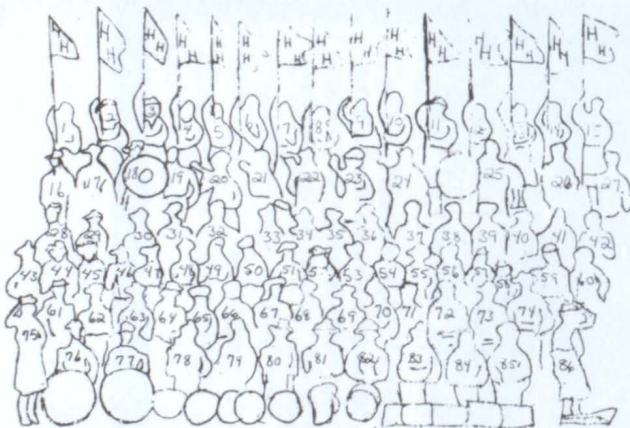 H H H H H H H H H H H H H H H H H H H H H H H H H H
1 2 4 5 6 7 8 9 10 11 12 13 14
16 17 18 19 20 21 22 23 24 25 26 27
28 29 30 31 32 33 34 35 36 37 38 39 40 41 42
43 44 45 46 47 48 49 50 51 53 54 55 56 57 58 59 60
61 62 63 64 65 66 67 68 69 70 71 72 73 74
75 76 77 78 79 80 81 82 83 84 85 86